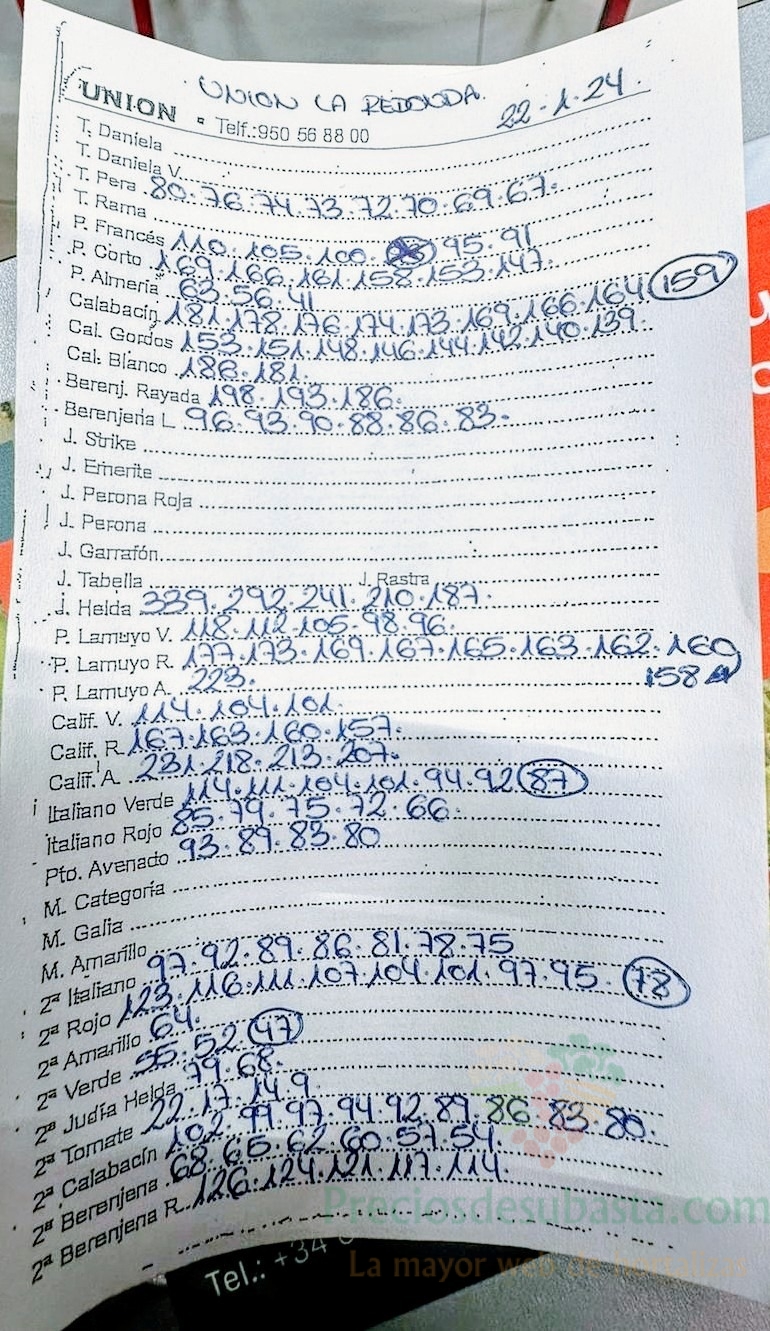 UNION LA REDONDA.
22-1-24.
UNION - Telf.:950 56 88 00
T. Daniela
T. Daniela V.
T. Pera 80.76.74.73.72.70.69.67.
T. Rama
P. Francés 110.105.100. 95.91
P. Corto 169.166.161.158.153.147.
P. Almería 63.56.41
Calabacín 181.178.176.174.173.169.166.164 159
Cal. Gordos 153.151.148.146.144.142.140.139.
Cal. Blanco 186.181.
Berenj. Rayada 198.193.186.
Berenjena L. 96.93.90.88.86.83.
J. Strike
J. Emerite
J. Perona Roja
J. Perona
J. Garrafón
J. Tabella J. Rastra
J. Helda 339.292.241.210.187.
P. Lamuyo V. 118.112.105.98.96.
P. Lamuyo R. 177.173.169.167.165.163.162.160
158
P. Lamuyo A. 223.
Calif. V. 114.104.101.
Calif. R. 167.163.160.157.
Calif. A. 231.218.213.207.
Italiano Verde 114.111.104.101.94.92 87
Italiano Rojo 85.79.75.72.66.
Pto. Avenado 93.89.83.80
M. Categoría
M. Galia
M. Amarillo
2ª Italiano 97.92.89.86.81.78.75
2ª Rojo 123.116.111.107.104.101.97.95. 78
2ª Amarillo 64.
2ª Verde 55.52 47
2ª Judía Helda 79.68.
2ª Tomate 22.17.14.9
2ª Calabacín 102.99.97.94.92.89.86.83.80.
2ª Berenjena 68.65.62.60.57.54.
2ª Berenjena R. 126.124.121.117.114.
Preciosdesubasta.com
La mayor web de hortalizas
Tel.: +34